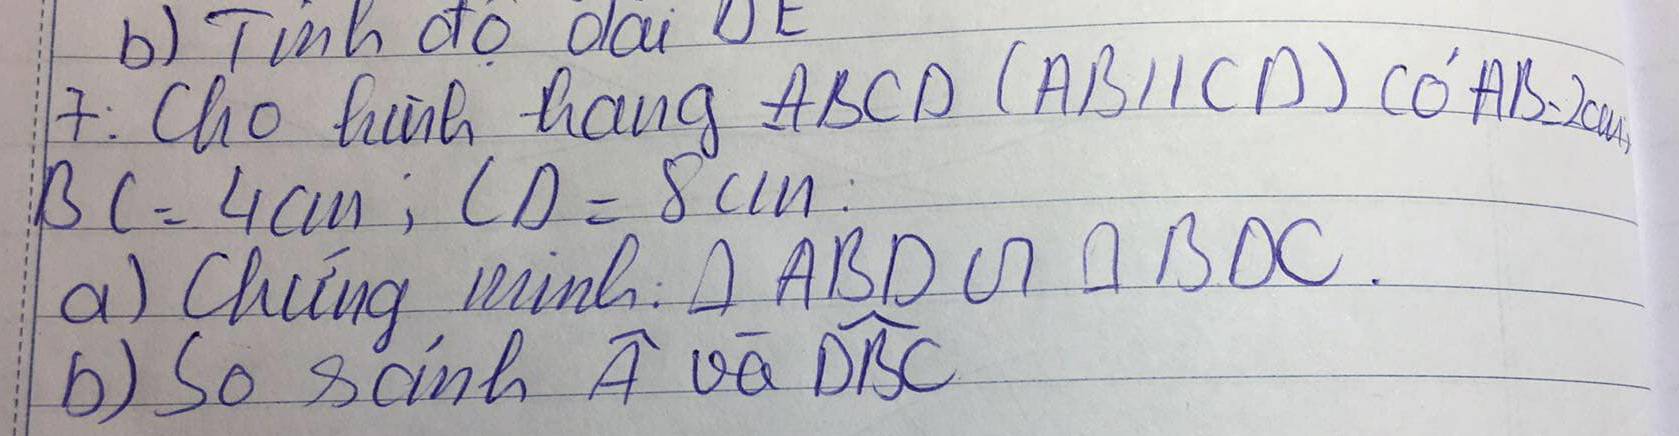 b) Tính độ dài DE
7: Cho hình thang ABCD (AB//CD) có AB=2cm,
BC = 4cm; CD = 8cm:
a) Chứng minh: Δ ABD ∽ Δ BDC.
b) So sánh Â và D̂B̂C